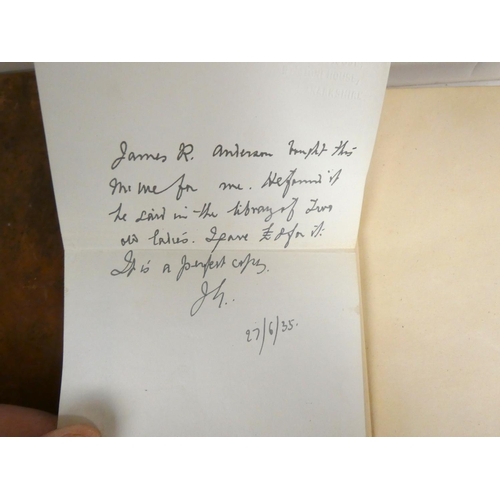 James R. Anderson bought this
volume for me. He found it
he said in the library of two
old ladies. I gave £8 for it.
It is a perfect copy.
27/6/35.